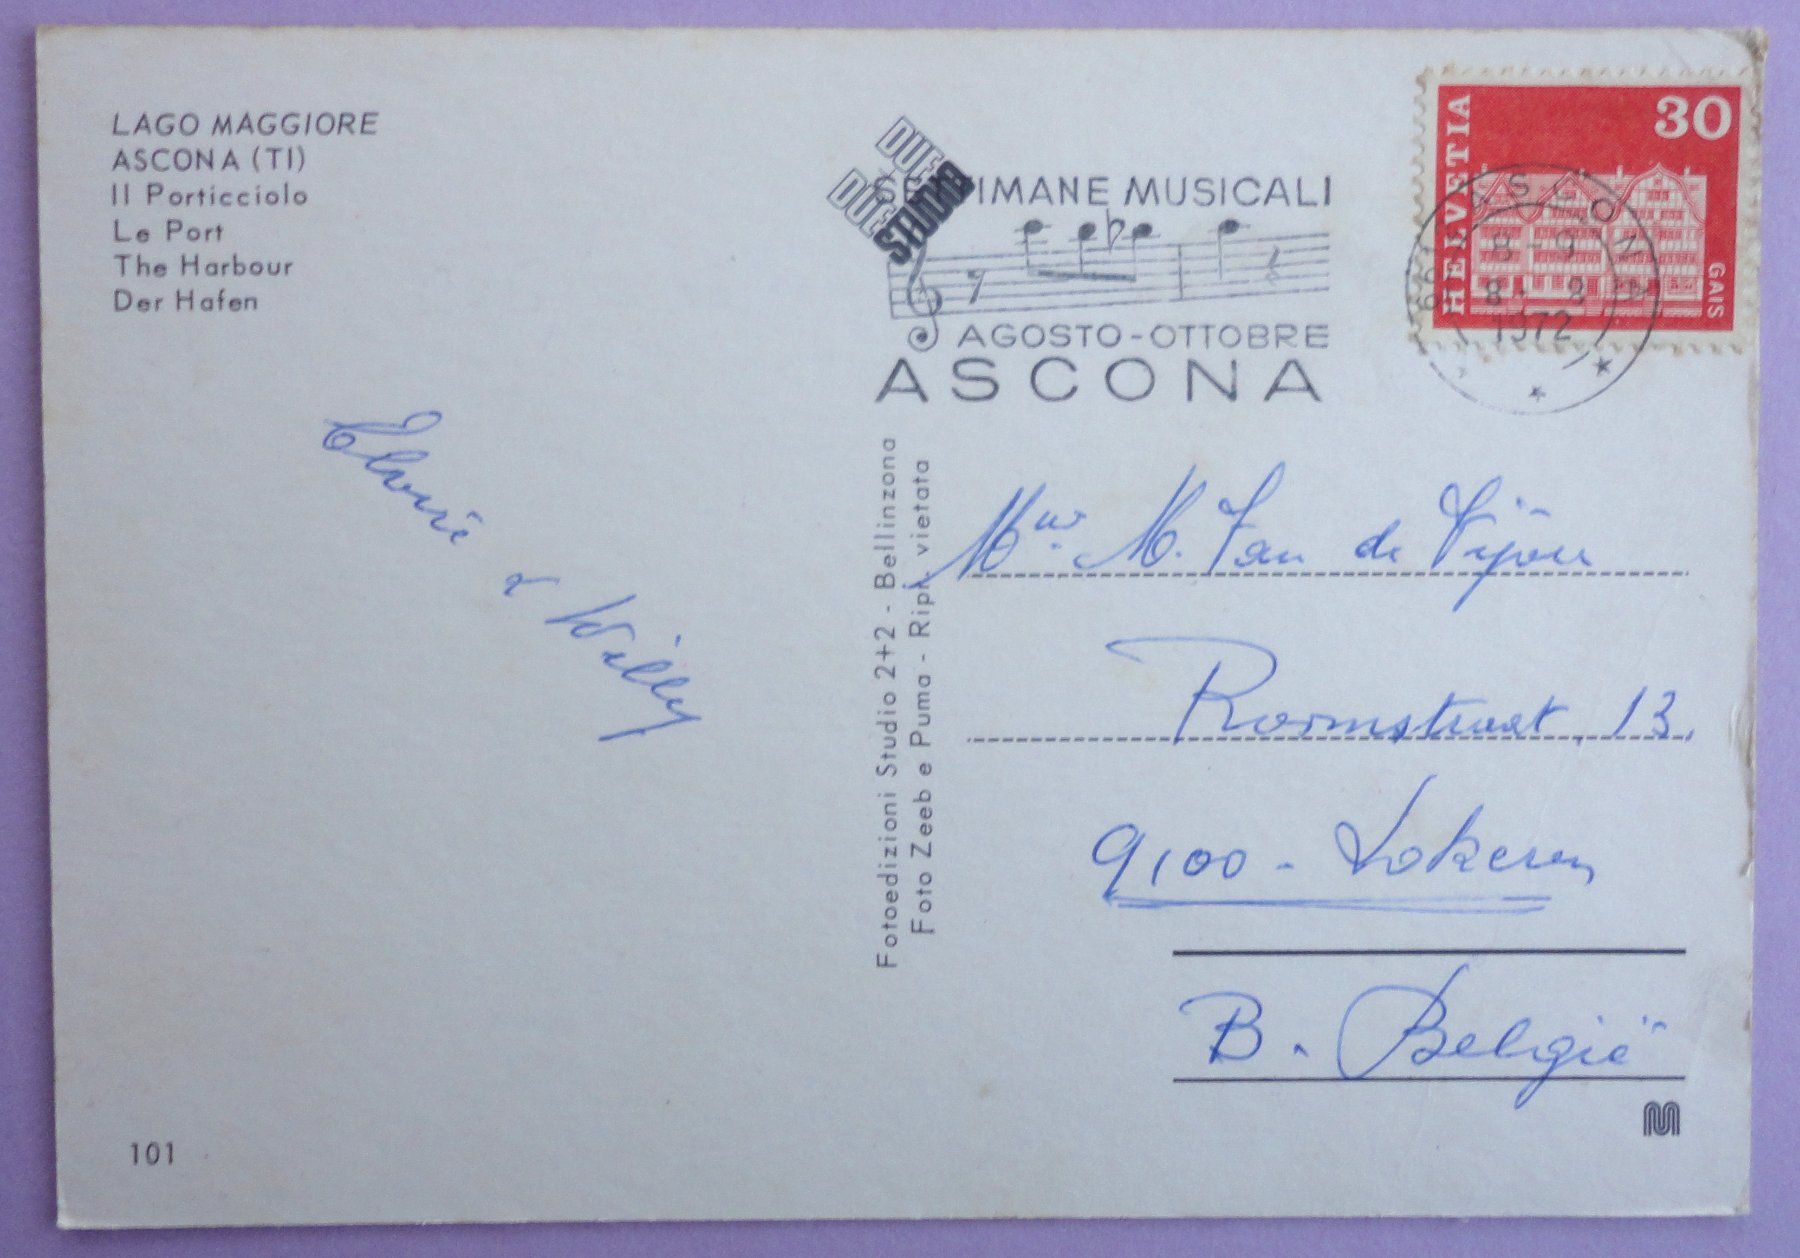 LAGO MAGGIORE
ASCONA (TI)
Il Porticciolo
Le Port
The Harbour
Der Hafen
DUE
DUE
STUDIO
STUDIO
SETTIMANE MUSICALI
AGOSTO-OTTOBRE
ASCONA
HELVETIA
30
GAIS
ASCONA
8-9
8. 8
1972
& Willy
Fotoedizioni Studio 2+2 - Bellinzona
Foto Zeeb e Puma - Ripr. vietata
M. Van de Vijver
13.
9100 - Lokeren
B. België
101